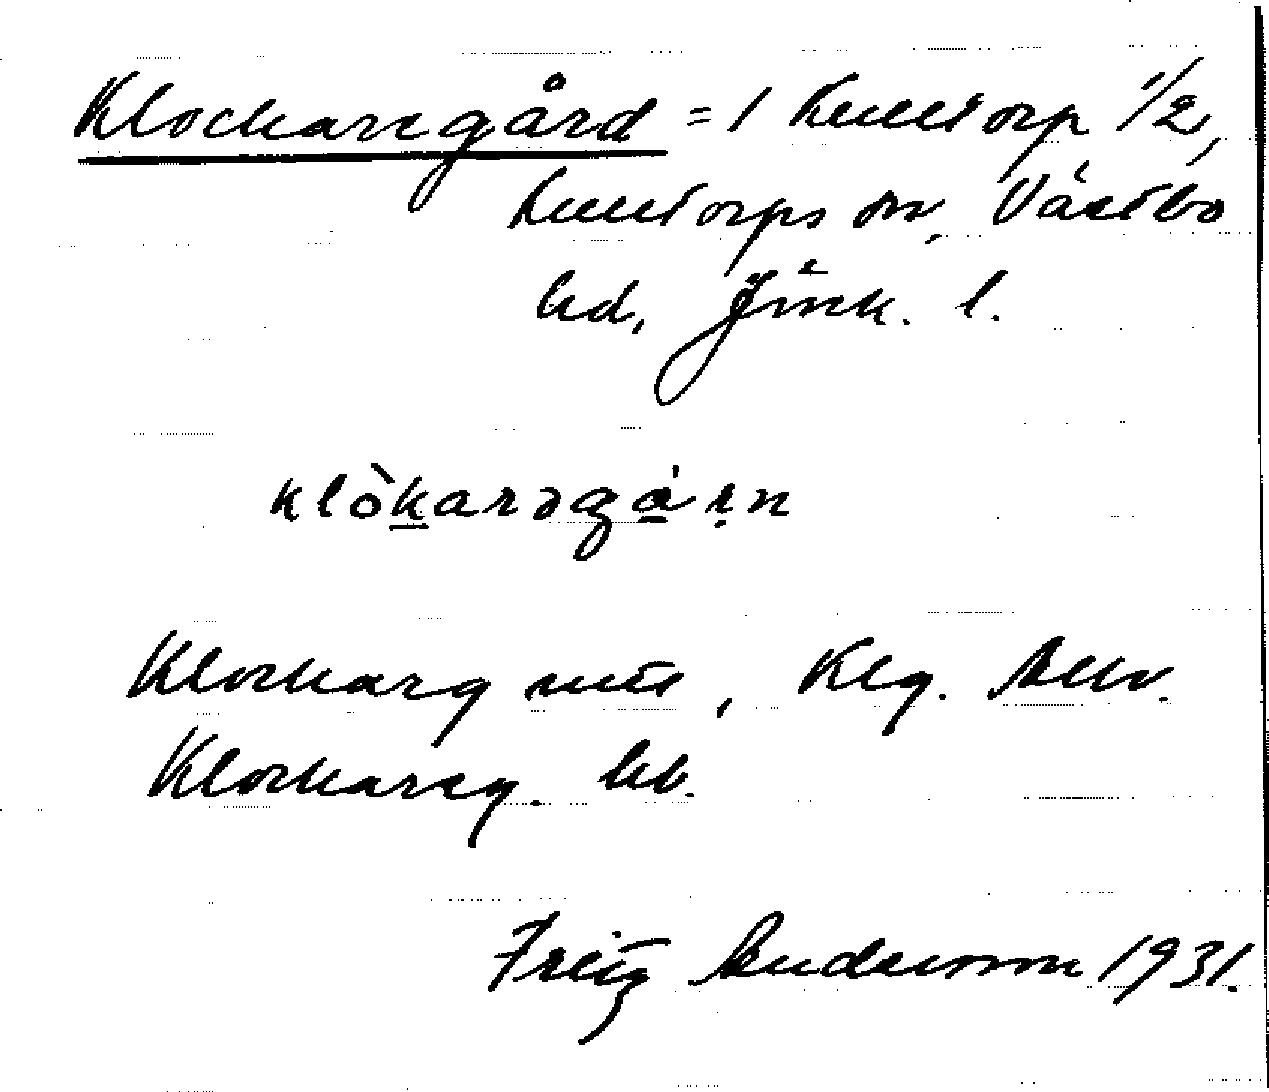 Klockaregård = 1 Kulltorp 1/2,
Kulltorps sn, Västbo
hd, Jönk. l.
klòkarəgá̱ṛn
Klockarg , Klg.
Klockareg. hb.
Fritz Andersson 1931.